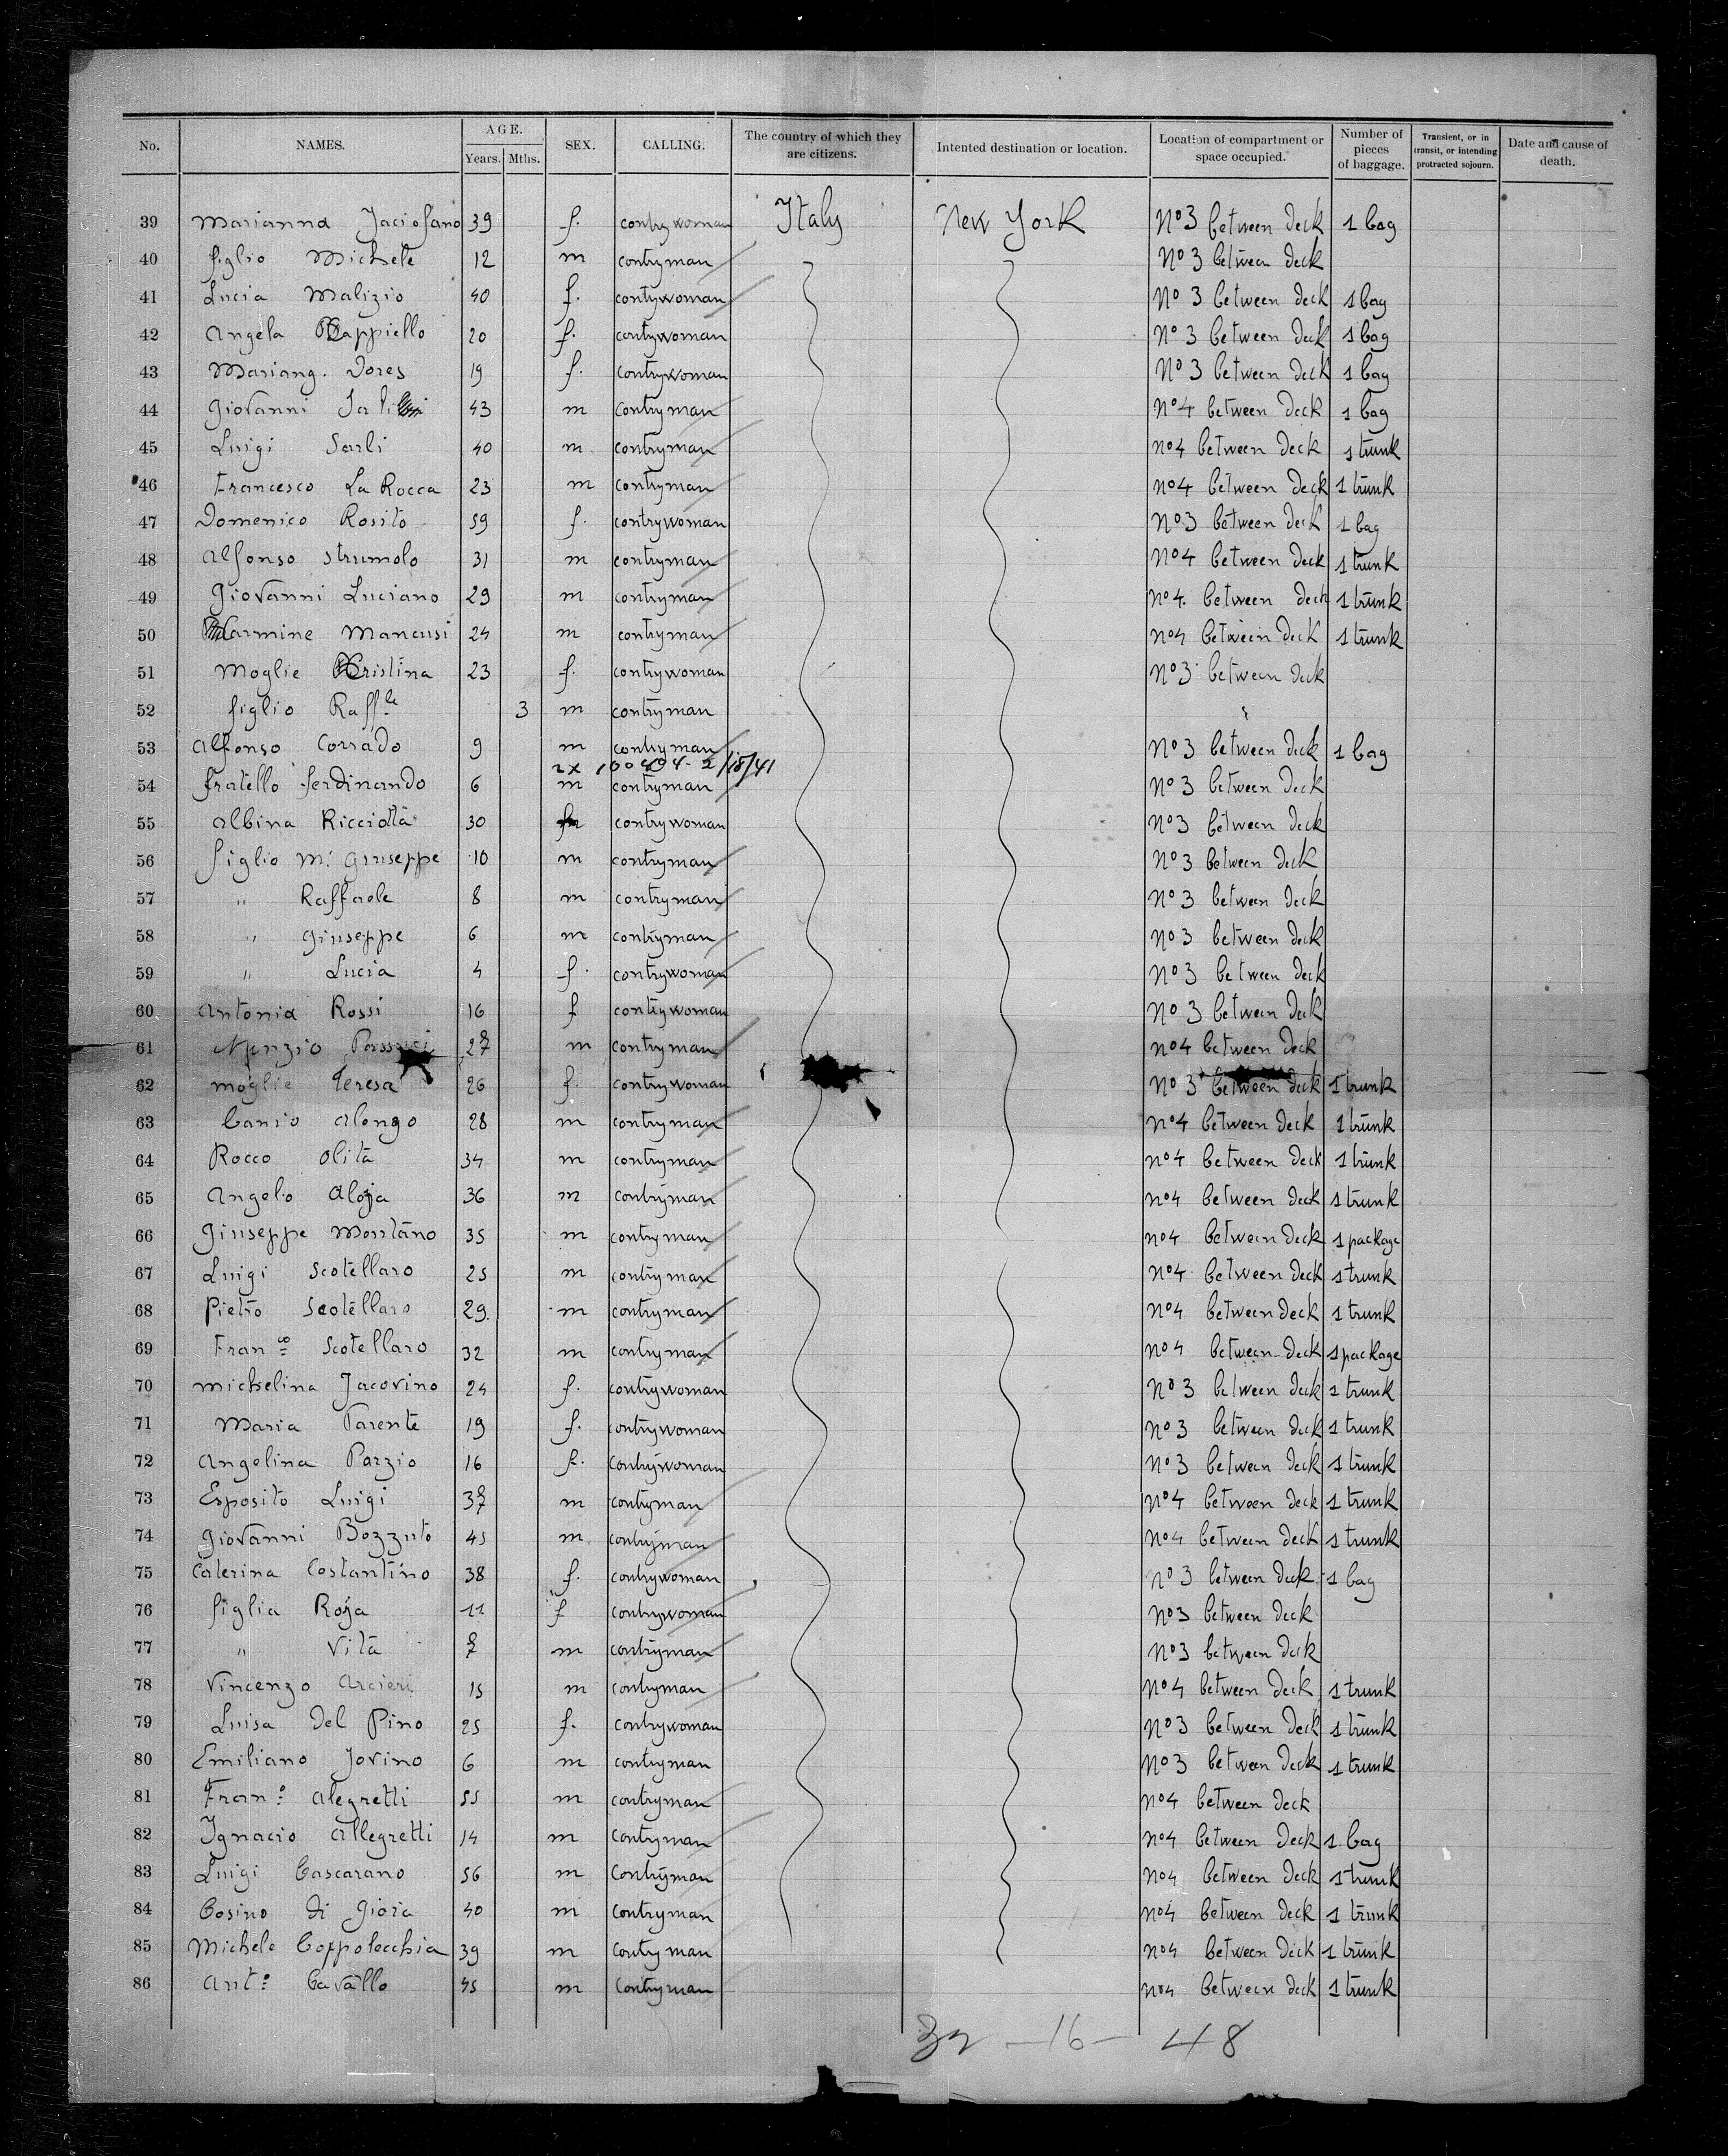 No. NAMES. AGE. Years. Mths. SEX. CALLING. The country of which they are citizens. Intented destination or location. Location of compartment or space occupied. Number of pieces of baggage. Transient, or in transit, or intending protracted sojourn. Date and cause of death.
39 Marianna Jaciofano 39 f. contrywoman Italy New York No 3 between deck 1 bag
40 figlio Michele 12 m contryman No 3 between deck
41 Lucia Malizio 40 f. contrywoman No 3 between deck 1 bag
42 Angela Cappiello 20 f. contrywoman No 3 between deck 1 bag
43 Mariang. Dores 19 f. contrywoman No 3 between deck 1 bag
44 Giovanni 43 m contryman No 4 between deck 1 bag
45 Luigi Sarli 40 m contryman No 4 between deck 1 trunk
46 Francesco La Rocca 23 m contryman No 4 between deck 1 trunk
47 Domenico Rosito 59 f. contrywoman No 3 between deck 1 bag
48 Alfonso Strumolo 31 m contryman No 4 between deck 1 trunk
49 Giovanni Luciano 29 m contryman No 4. between deck 1 trunk
50 Carmine Mancusi 24 m contryman No 4 between deck 1 trunk
51 Moglie Cristina 23 f. contrywoman No 3 between deck
52 figlio Raff.le 3 m contryman "
53 Alfonso Corrado 9 m contryman No 3 between deck 1 bag
2x 100404-2/18/41
54 fratello ferdinando 6 m contryman No 3 between deck
55 Albina Ricciotta 30 f contrywoman No 3 between deck
56 figlio M. Giuseppe 10 m contryman No 3 between deck
57 " Raffaele 8 m contryman No 3 between deck
58 " Giuseppe 6 m contryman No 3 between deck
59 " Lucia 4 f. contrywoman No 3 between deck
60 Antonia Rossi 16 f contrywoman No 3 between deck
61 Nunzio 27 m contryman No 4 between deck
62 moglie Teresa 26 f. contrywoman No 3 between deck 1 trunk
63 Canio Alongo 28 m contryman No 4 between deck 1 trunk
64 Rocco Olita 34 m contryman No 4 between deck 1 trunk
65 Angelo Aloja 36 m contryman No 4 between deck 1 trunk
66 Giuseppe Montano 35 m contryman No 4 between deck 1 package
67 Luigi Scotellaro 25 m contryman No 4 between deck 1 trunk
68 Pietro Scotellaro 29. m contryman No 4 between deck 1 trunk
69 Fran.co Scotellaro 32 m contryman No 4 between deck 1 package
70 Michelina Jacovino 24 f. contrywoman No 3 between deck 1 trunk
71 Maria Parente 19 f. contrywoman No 3 between deck 1 trunk
72 Angelina Parzio 16 f. contrywoman No 3 between deck 1 trunk
73 Esposito Luigi 37 m contryman No 4 between deck 1 trunk
74 Giovanni Bozzuto 45 m. contryman No 4 between deck 1 trunk
75 Caterina Costantino 38 f. contrywoman No 3 between deck 1 bag
76 figlia Roja 11 f contrywoman No 3 between deck
77 " Vita 7 m contryman No 3 between deck
78 Vincenzo Arcieri 15 m contryman No 4 between deck 1 trunk
79 Luisa Del Pino 25 f. contrywoman No 3 between deck 1 trunk
80 Emiliano Jovino 6 m contryman No 3 between deck 1 trunk
81 Fran.o Alegretti 55 m contryman No 4 between deck
82 Ignacio Allegretti 14 m contryman No 4 between deck 1 bag
83 Luigi Cascarano 56 m contryman No 4 between deck 1 trunk
84 Cosino Di Gioia 40 m contryman No 4 between deck 1 trunk
85 Michele Coppolecchia 39 m contryman No 4 between deck 1 trunk
86 Ant.o Cavallo 45 m contryman No 4 between deck 1 trunk
32 - 16 - 48